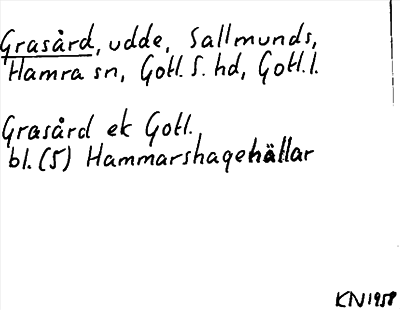 Grasård, udde, Sallmunds,
Hamra sn, Gotl. S. hd, Gotl. l.
Grasård ek Gotl.
bl. (5) Hammarshagehällar
KN 1958